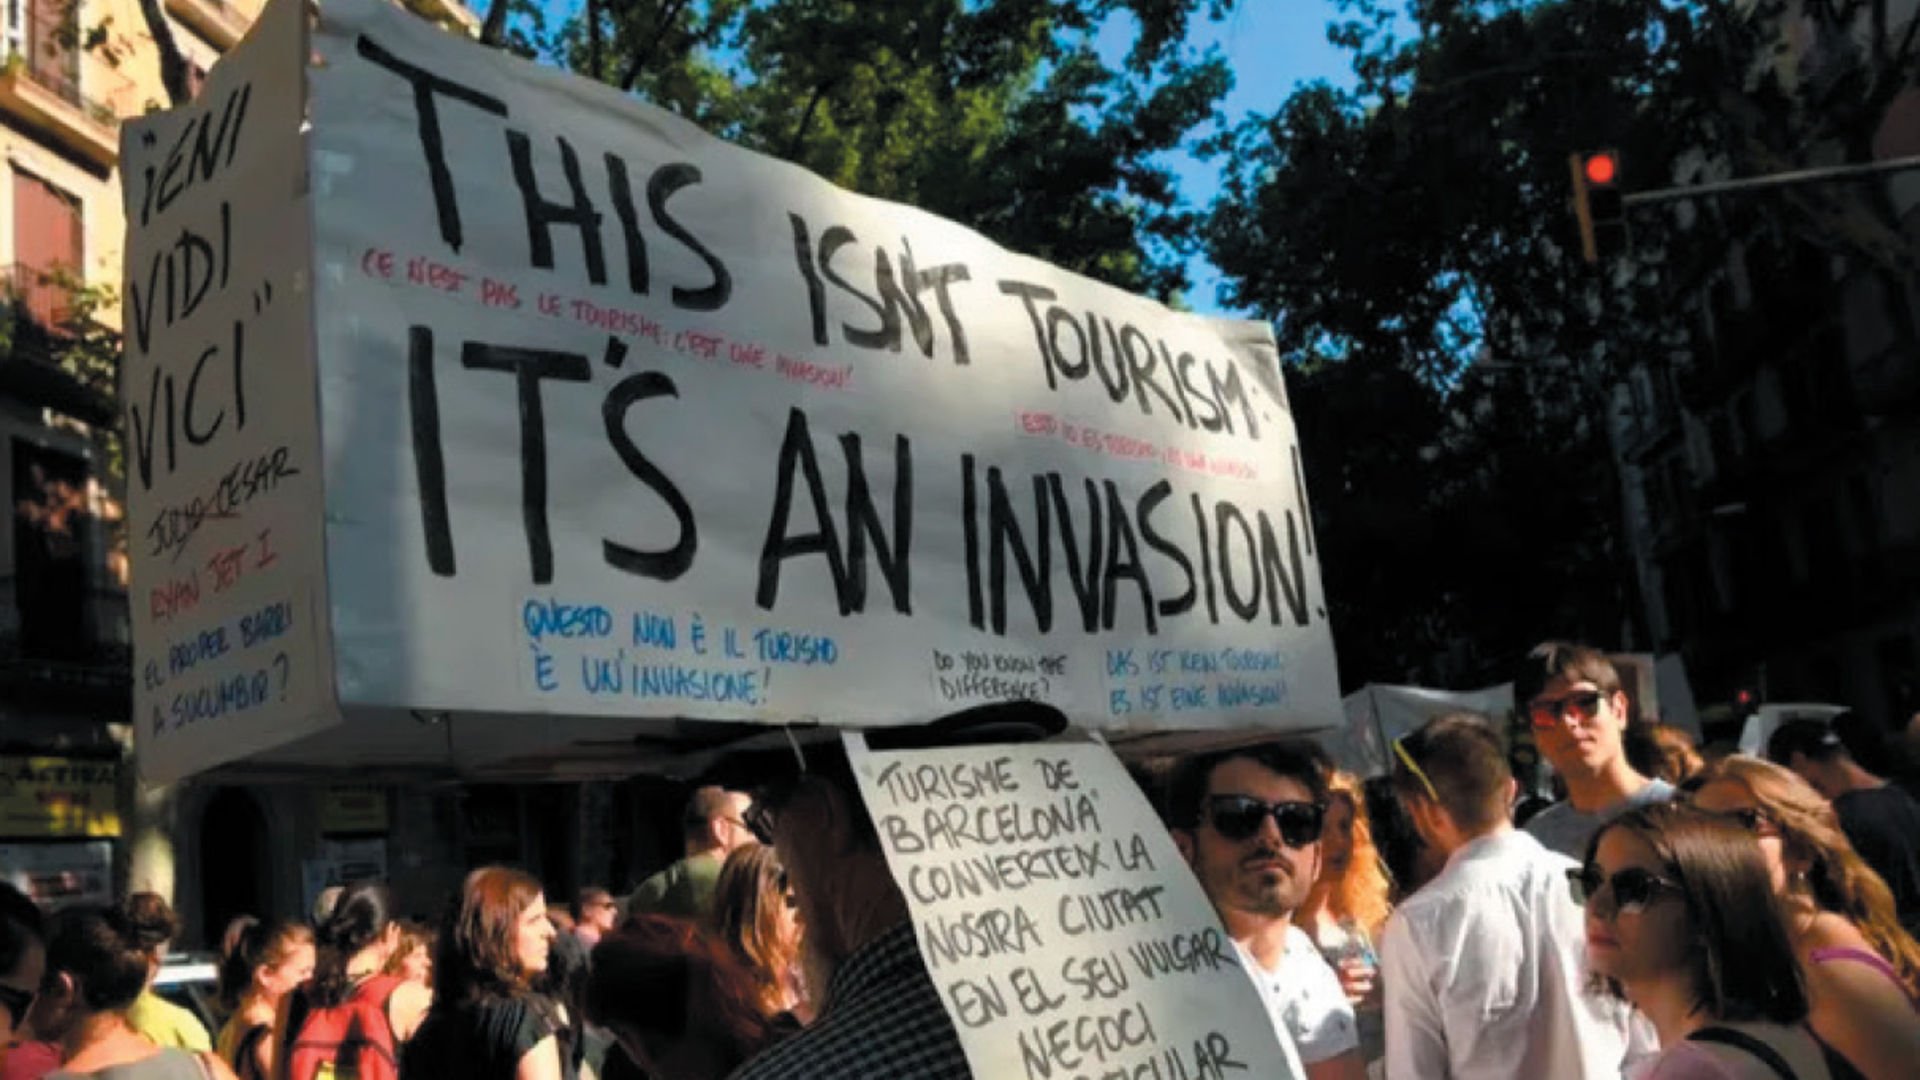 "VENI
VIDI
VICI"
JULIO CESAR
RYAN JET I
EL PROPER BARRI
A SUCUMBIR?
THIS ISN'T TOURISM:
CE N'EST PAS LE TOURISME: C'EST UNE INVASION!
ESTO NO ES TURISMO, ES UNA INVASION
IT'S AN INVASION!
QUESTO NON È IL TURISMO
È UN'INVASIONE!
DO YOU KNOW THE
DIFFERENCE?
DAS IST KEIN TOURISMUS
ES IST EINE INVASION!
"TURISME DE
BARCELONA"
CONVERTEIX LA
NOSTRA CIUTAT
EN EL SEU VULGAR
NEGOCI